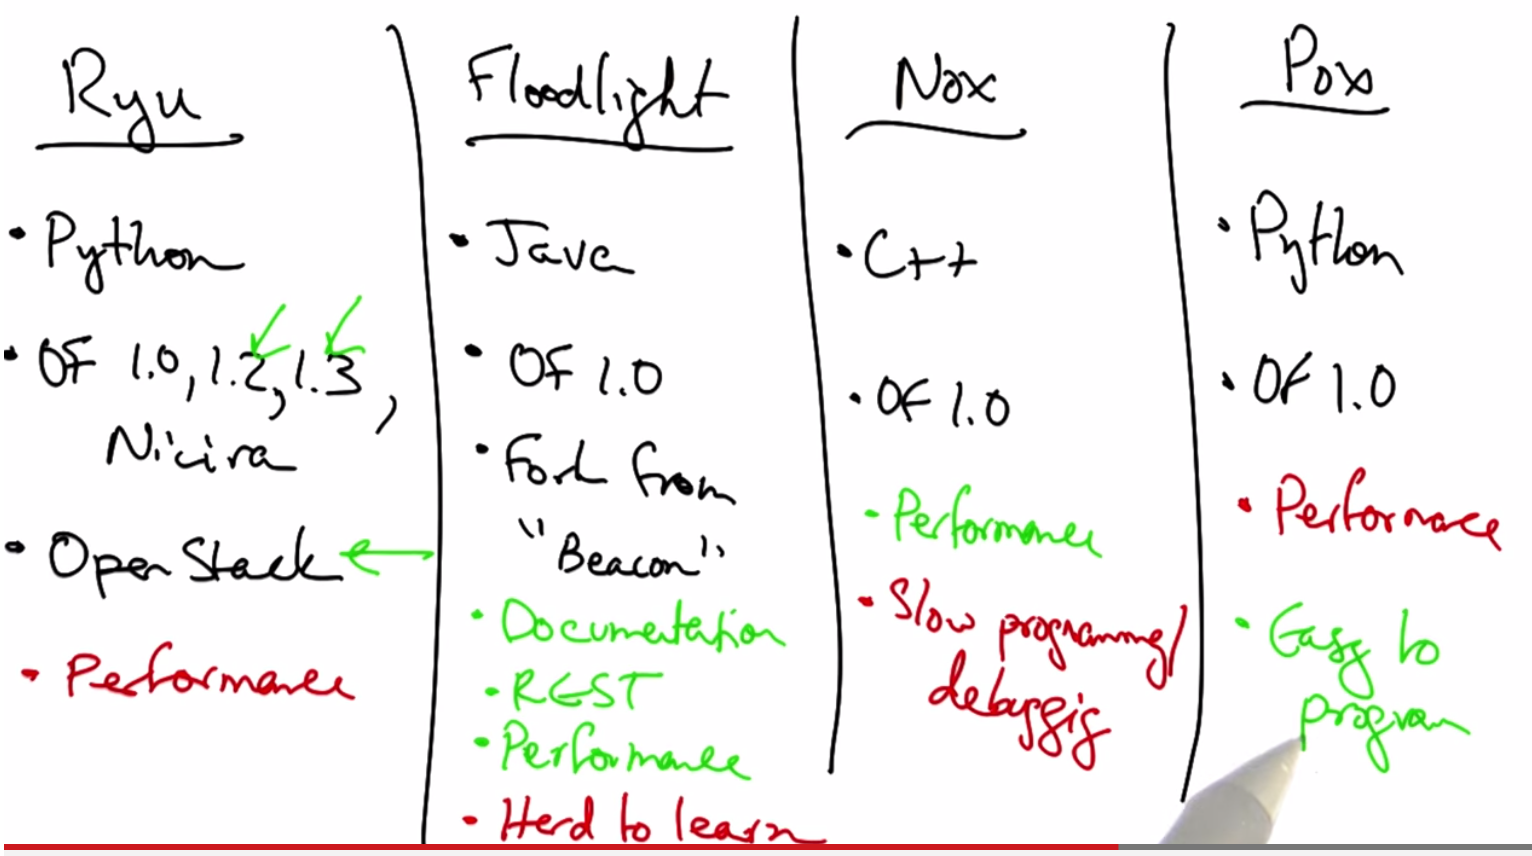 Ryu
• Python
• OF 1.0, 1.2, 1.3,
Nicira
• OpenStack
• Performance
Floodlight
• Java
• OF 1.0
• Fork from
"Beacon"
• Documentation
• REST
• Performance
• Herd to learn
Nox
• C++
• OF 1.0
• Performance
• Slow programming/
debuggig
Pox
• Python
• OF 1.0
• Performace
• Easy to
program